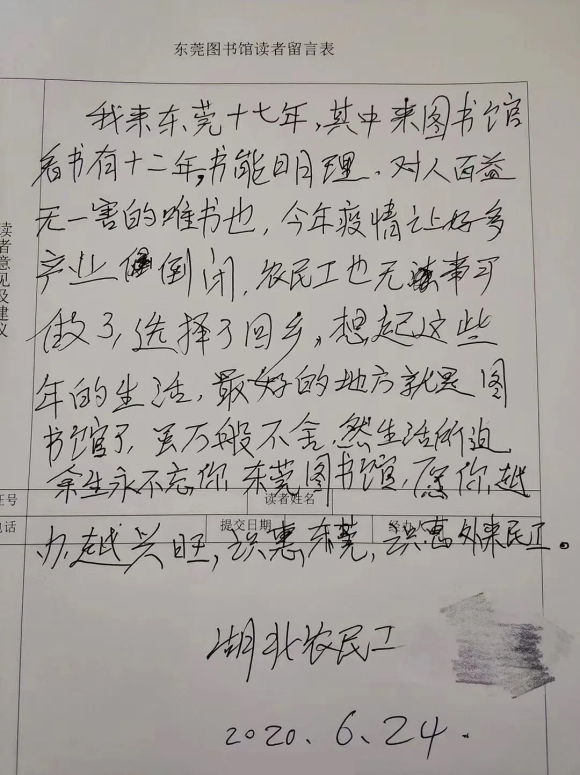 东莞图书馆读者留言表
我来东莞十七年，其中来图书馆
看书有十二年，书能明理，对人百益
无一害的唯书也，今年疫情让好多
产业倒闭，农民工也无事可
做了，选择了回乡，想起这些
年的生活，最好的地方就是图
书馆了，虽万般不舍，然生活所迫
余生永不忘你，东莞图书馆，愿你越
办越兴旺，识惠东莞，识惠外来民工。
湖北农民工
2020.6.24.
读者意见及建议
证号
读者姓名
电话
提交日期
经办人